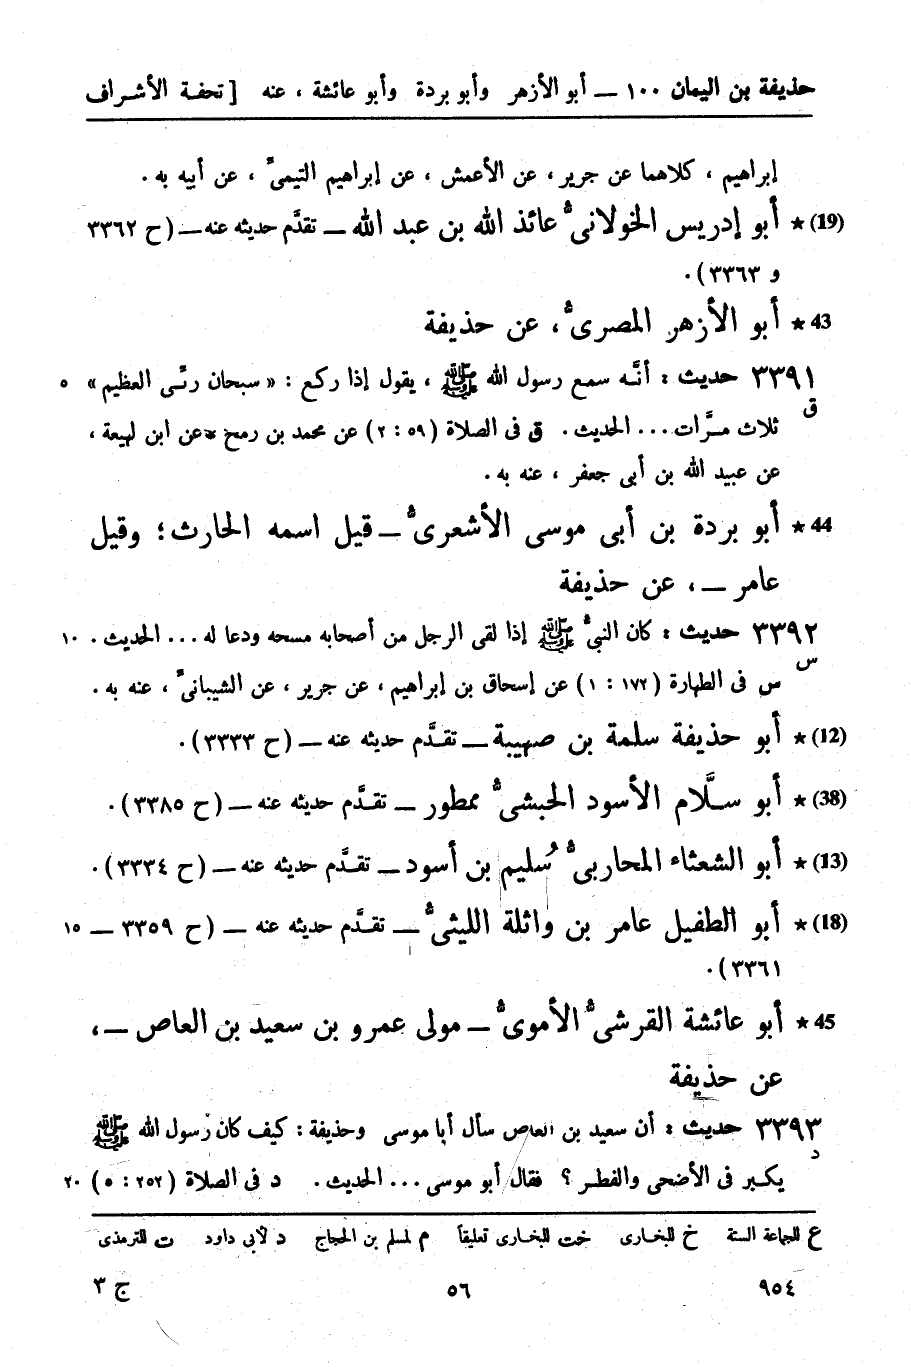 حذيفة بن اليمان ١٠٠ — أبو الأزهر وأبو بردة وأبو عائشة ، عنه [ تحفة الأشراف
إبراهيم ، كلاهما عن جرير ، عن الأعمش ، عن إبراهيم التيمىّ ، عن أبيه به .
(19) ★ أبو إدريس الخولانىّ عائذ الله بن عبد الله — تقدَّم حديثه عنه — (ح ٣٣٦٢
و ٣٣٦٣).
43 ★ أبو الأزهر المصرىّ ، عن حذيفة
٣٣٩١ حديث : أنَّه سمع رسول الله ﷺ ، يقول إذا ركع : « سبحان ربِّى العظيم » ٥
ق
ثلاث مرَّات ... الحديث . ق فى الصلاة (٥٩ : ٢) عن محمد بن رمح * عن ابن لهيعة ،
عن عبيد الله بن أبى جعفر ، عنه به .
44 ★ أبو بردة بن أبى موسى الأشعرىّ — قيل اسمه الحارث ؛ وقيل
عامر — ، عن حذيفة
٣٣٩٢ حديث : كان النبىّ ﷺ إذا لقى الرجل من أصحابه مسحه ودعا له ... الحديث . ١٠
س
س فى الطهارة (١٧٢ : ١) عن إسحاق بن إبراهيم ، عن جرير ، عن الشيبانىّ ، عنه به .
(12) ★ أبو حذيفة سلمة بن صهيبة — تقدَّم حديثه عنه — (ح ٣٣٣٣).
(38) ★ أبو سلَّام الأسود الحبشىّ ممطور — تقدَّم حديثه عنه — (ح ٣٣٨٥).
(13) ★ أبو الشعثاء المحاربىّ سُليم بن أسود — تقدَّم حديثه عنه — (ح ٣٣٣٤).
(18) ★ أبو الطفيل عامر بن واثلة الليثىّ — تقدَّم حديثه عنه — (ح ٣٣٥٩ — ١٥
٣٣٦١).
45 ★ أبو عائشة القرشىّ الأموىّ — مولى عمرو بن سعيد بن العاص — ،
عن حذيفة
٣٣٩٣ حديث : أن سعيد بن العاص سأل أبا موسى وحذيفة : كيف كان رسول الله ﷺ
د
يكبر فى الأضحى والفطر ؟ فقال أبو موسى ... الحديث . د فى الصلاة (٢٥٢ : ٥) ٢٠
ع للجماعة الستة خ للبخارى خت للبخارى تعليقاً م لمسلم بن الحجاج د لأبى داود ت للترمذى
٩٥٤ ٥٦ ج ٣